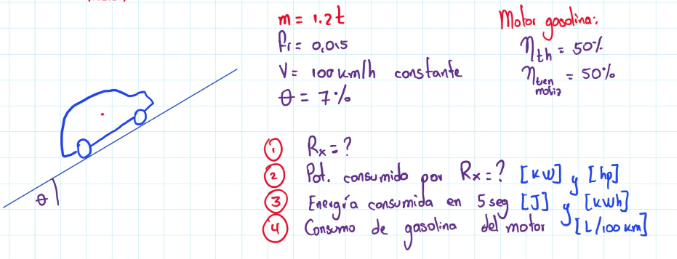 m = 1.2t
fr = 0,015
V = 100 km/h constante
θ = 7%
Motor gasolina:
ηth = 50%
ηtren motriz = 50%
θ
① Rx = ?
② Pot. consumido por Rx = ? [kW] y [hp]
③ Energía consumida en 5 seg [J] y [kWh]
④ Consumo de gasolina del motor [L/100 km]